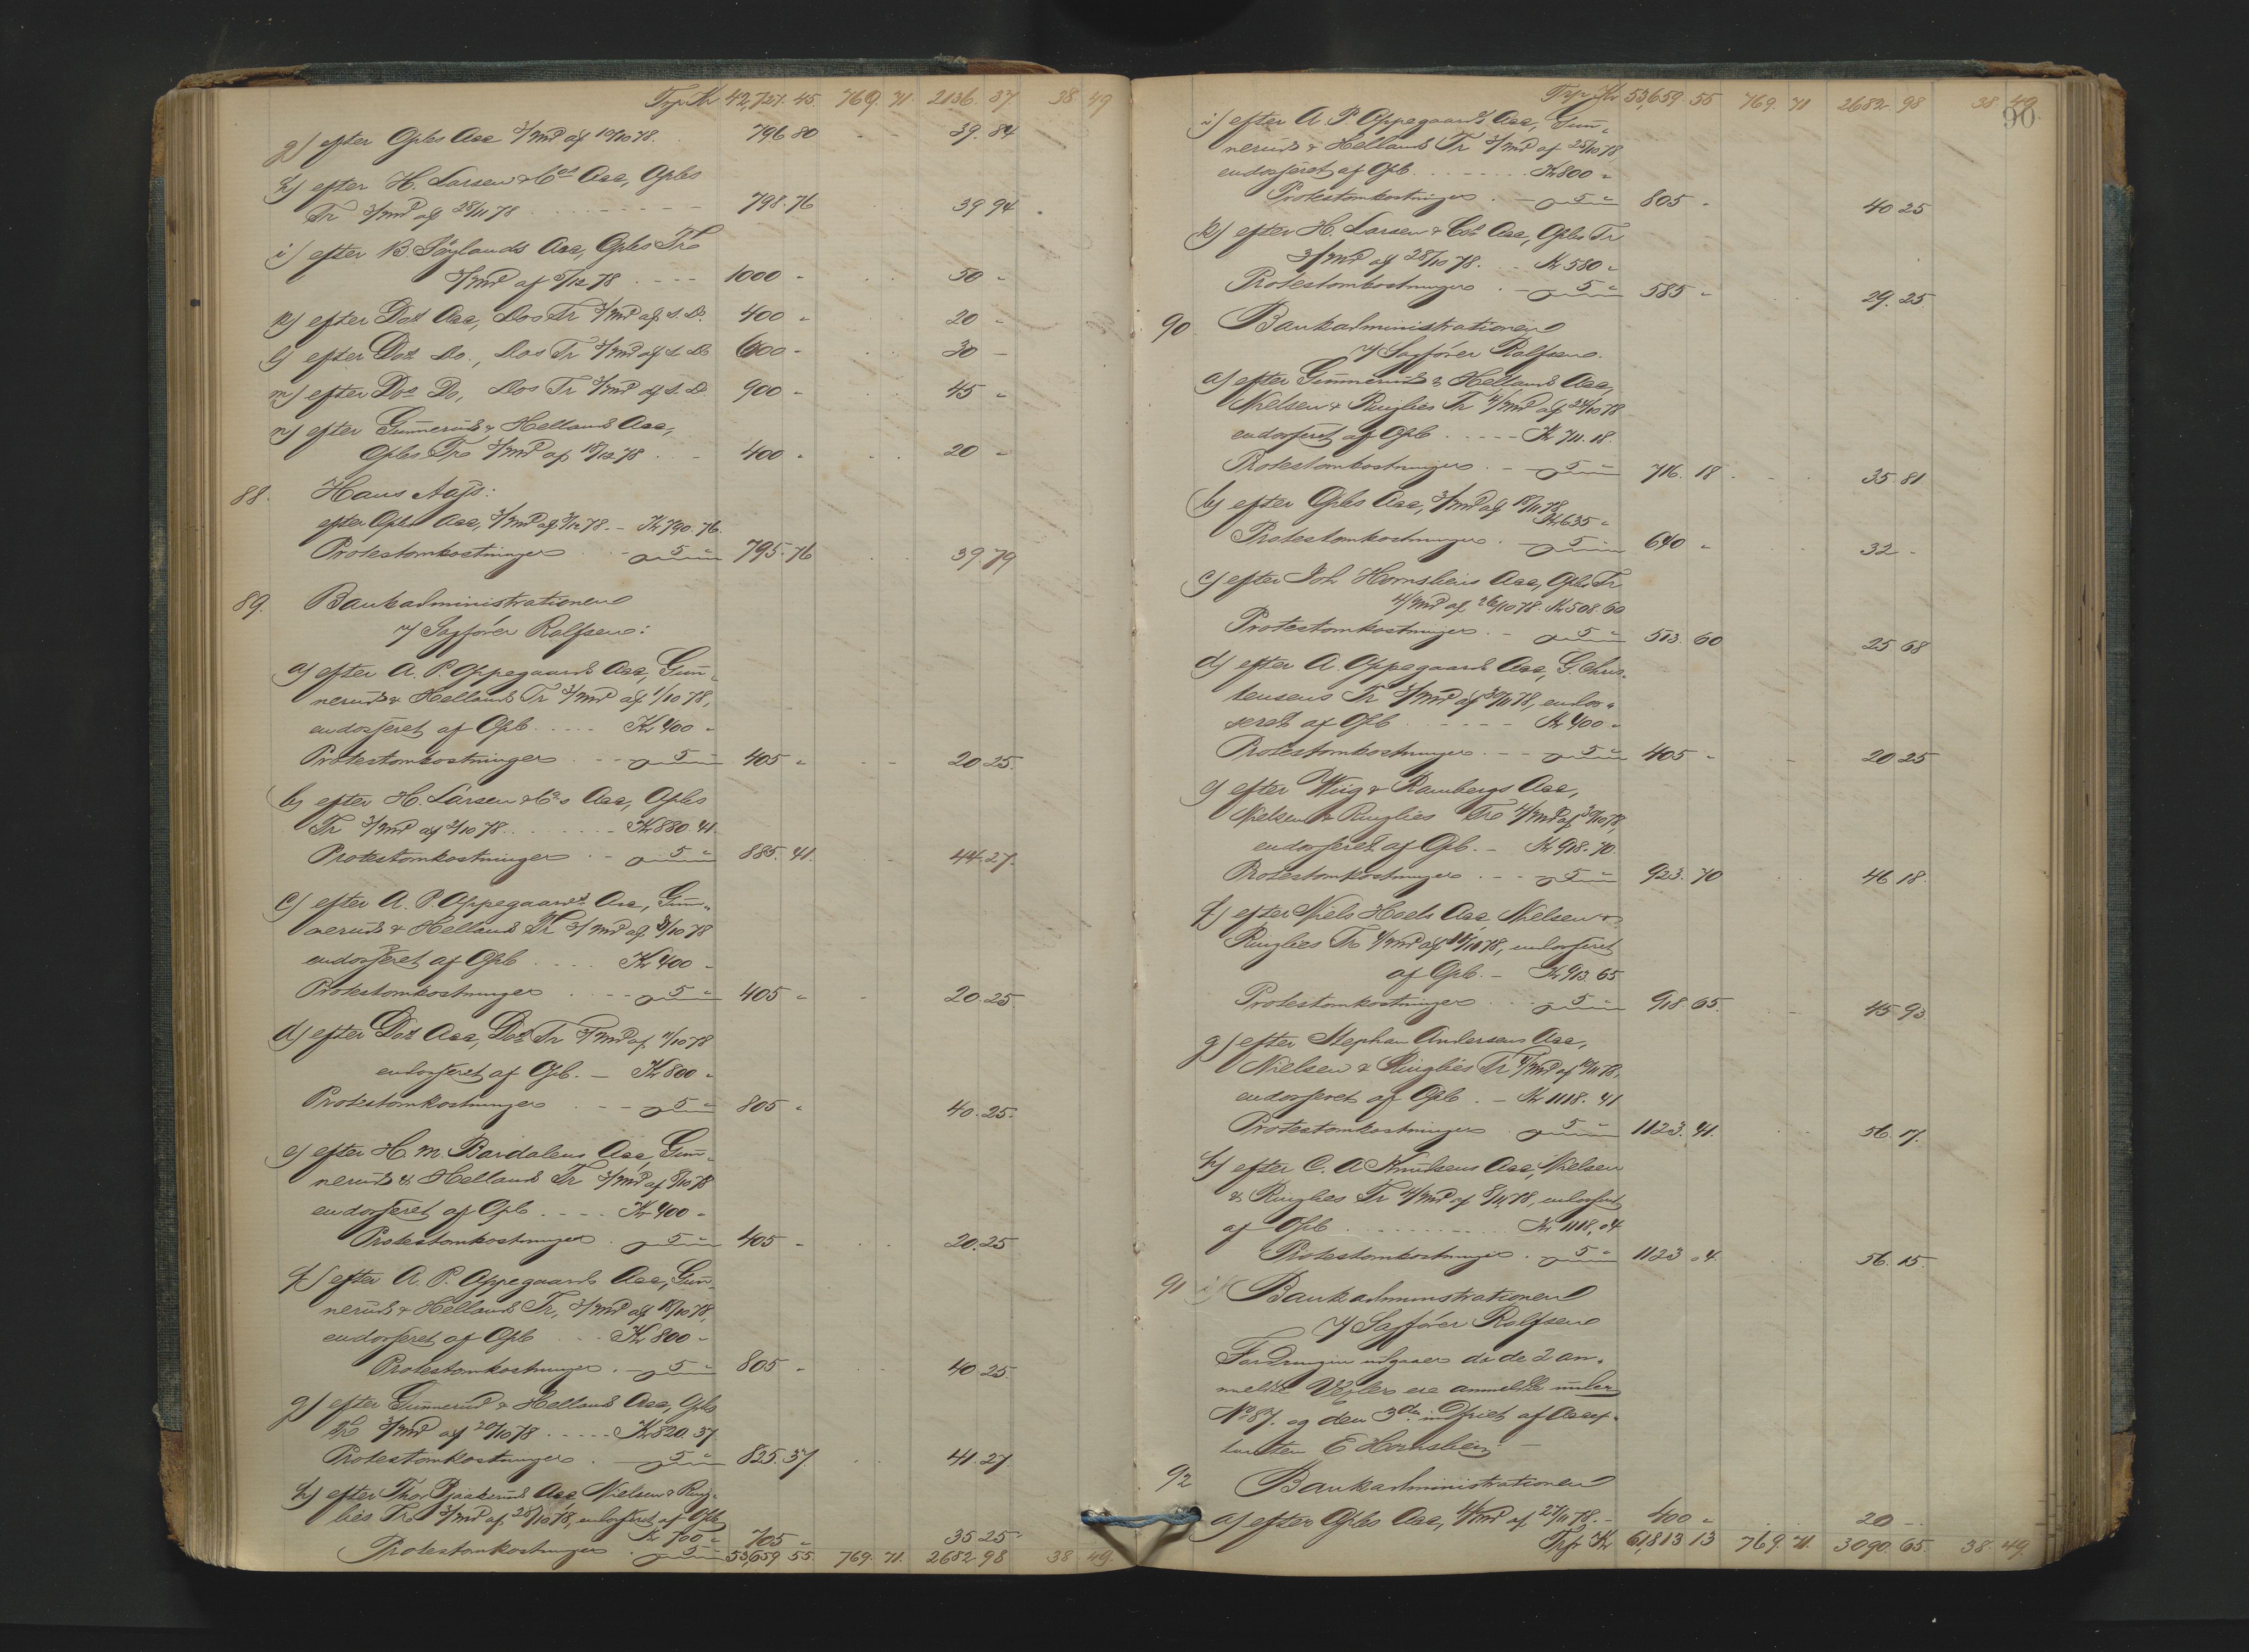 Trp. Kr 42,727. 45. 769. 71. 2136. 37. 38 49
g) efter Opbs Acc 3/md af 10/10 78. 796 80 - - 39. 84
h) efter H. Larsen & Co.s Acc, Opbs
Tr 3/md af 28/11 78 798. 76 39 94
i) efter B. Föylands Acc, Opbs Tr
3/md af 5/12 78 1000 - 50 -
k) efter Dos Acc, Dos Tr 3/md af s. D. 400 - 20 -
l) efter Dos Do., Dos Tr 3/md af s. D 600 - 30 -
m) efter Dos Do, Dos Tr 3/md af s. D 900 - 45 -
n) efter Gunnerud & Hellands Acc,
Opbs Tr 3/md af 18/12 78 400 - 20 -
88. Hans Aas:
efter Opbs Acc, 3/md af 3/12 78. - Kr 790. 76.
Protestomkostninger - 5 " 795. 76 39 79
89. Bankadministrationen
v/ Sagfører Rolfsen:
a) efter A. P. Oppegaards Acc, Gun-
neruds & Hellands Tr 3/md af 1/10 78,
endosseret af Opb Kr 400 -
Protestomkostninger - 5 " 405 - 20 25.
b) efter H. Larsen & Co.s Acc, Opbs
Tr 3/md af 2/10 78 Kr 880. 41.
Protestomkostninger - 5 " 885. 41. 44. 27.
c) efter A. P. Oppegaards Acc, Gun-
neruds & Hellands Tr 3/md af 8/10 78
endosseret af Opb Kr 400 -
Protestomkostninger - 5 " 405 - 20. 25.
d) efter Dos Acc, Dos Tr 3/md af 11/10 78
endosseret af Opb. - Kr 800 -
Protestomkostninger - 5 " 805 - 40. 25.
e) efter H. M. Bardalens Acc, Gun-
neruds & Hellands Tr 3/md af 8/10 78
endosseret af Opb Kr 400 -
Protestomkostninger - 5 " 405 - 20. 25
f) efter A. P. Oppegaards Acc, Gun-
neruds & Hellands Tr, 3/md af 18/10 78,
endosseret af Opb Kr 800 -
Protestomkostninger - 5 " 805 - 40. 25.
g) efter Gunnerud & Hellands Acc, Opbs
Tr 3/md af 20/10 78 Kr 820. 37
Protestomkostninger - 5 " 825. 37. 41. 27.
h) efter Thor Acc Nielsen & Ring-
lies Tr 3/md af 28/10 78, endosseret af Opb
Kr 700 - 705 - 35 25
Protestomkostninger - 5 " 53,659 55. 769. 71. 2682 98 38 49.
Trp. Kr 53,659. 55 769. 71 2682 98 38. 49.
90.
i) efter A. P. Oppegaards Acc, Gun-
neruds & Hellands Tr 3/md af 25/10 78,
endosseret af Opb. Kr 800 -
Protestomkostninger - 5 " 805 - 40 25
k) efter H. Larsen & Cos Acc, Opbs Tr
3/md af 28/10 78. Kr 580 -
Protestomkostninger - 5 " 585 - 29. 25.
90. Bankadministrationen
v/ Sagfører Rolfsen.
a) efter Gunneruds & Hellands Acc,
Nielsen & Ringlies Tr 4/md af 24/10 78
endosseret af Opb Kr 711. 18.
Protestomkostninger - 5 " 716. 18 35 81
b) efter Opbs Acc, 3/md af 18/11 78,
Kr 635 -
Protestomkostninger - 5 " 640 - 32 -
c) efter Joh Hornsliens Acc, Opbs Tr
4/md af 26/10 78. Kr 508. 60
Protestomkostninger - 5 " 513. 60 25 68
d) efter A. Oppegaards Acc, G. Chris-
tensens Tr 3/md af 30/11 78, endos-
seret af Opb Kr 400 -
Protestomkostninger - 5 " 405 - 20 25
e) efter Wiig & Rambergs Acc,
Nielsen & Ringlies Tr 4/md af 30/10 78,
endosseret af Opb. - Kr 918. 70.
Protestomkostninger - 5 " 923. 70 46 18
f) efter Niels Hoels Acc Nielsen &
Ringlies Tr 4/md af 11/11 78, endosseret
af Opb. - Kr 913. 65
Protestomkostninger - 5 " 918. 65. 45 93
g) efter Stephan Andersens Acc,
Nielsen & Ringlies Tr 4/md af 12/11 78,
endosseret af Opb. - Kr 1118. 41
Protestomkostninger - 5 " 1123. 41. 56. 17.
h) efter C. A Knudsens Acc, Nielsen
& Ringlies Tr 4/md af 8/11 78, endosseret
af Opb Kr 1118, 04
Protestomkostninger - 5 " 1123 04. 56. 15.
91 Bankadministrationen
v/ Sagfører Rolfsen
Fordringen udgaaer da de 2 an-
meldte Vexler ere anmeldte under
No 87. og den 3die indfriet af Accep-
tanten E Hornslien. -
92 Bankadministrationen
a) efter Opbs Acc, 4/md af 27/11 78. - 400 - 20 -
Trp. Kr 61,813 13 769. 71. 3090. 65. 38. 49.